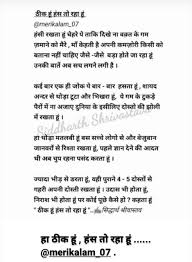 ठीक हूं हंस तो रहा हूं
@merikalam_07
हंसी रखता हूं चेहरे पे ताकि दिखे ना वक़्त के गम
ज़माने को मेरे , माँ कहती है अपनी कमजोरी किसी को
बताना नहीं चाहिए जैसे -जैसे बड़ा होते जा रहा हूं
उनकी बातें अब सच लगने लगी है ।
कई बार एक ही जोक पे बार - बार हसता हूं , शायद
अन्दर से थोड़ा टूटा और भिखरा हूं, ये गम के टुकड़े
पैरों में ना आजाए दुनिया के इसीलिए दोस्तो की झोली में
रखता हूं ।
हा थोड़ा मतलबी हूं बस सच्चे लोगो से और बेजुबान
जानवरों से रिश्ता रखता हूं, पहले ज्ञान देने की आदत
थी अब चुप रहना पसंद करता हूं ।
ज्यादा भीड़ से डरता हूं, वही पुराने 4 - 5 दोस्तों से
गहरी अपनी दोस्ती रखता हूं । उदास भी होता हूं,
निराश भी होता हूं पर कोई पूछे कैसे हो ? कहता हूं
" ठीक हूं हंस तो रहा हूं " सिद्धार्थ श्रीवास्तव
Siddharth Shrivastava
हा ठीक हूं , हंस तो रहा हूं ......
@merikalam_07 .